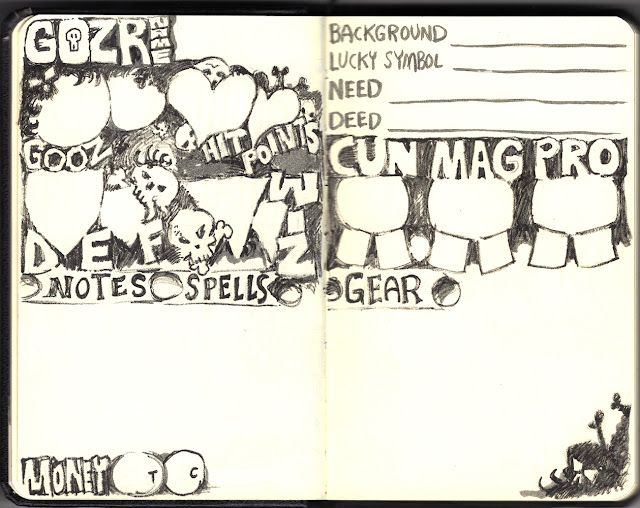 GOZR
GOOZ
HIT POINTS
DEF
WIZ
NOTES SPELLS
MONEY T C
BACKGROUND
LUCKY SYMBOL
NEED
DEED
CUN MAG PRO
GEAR